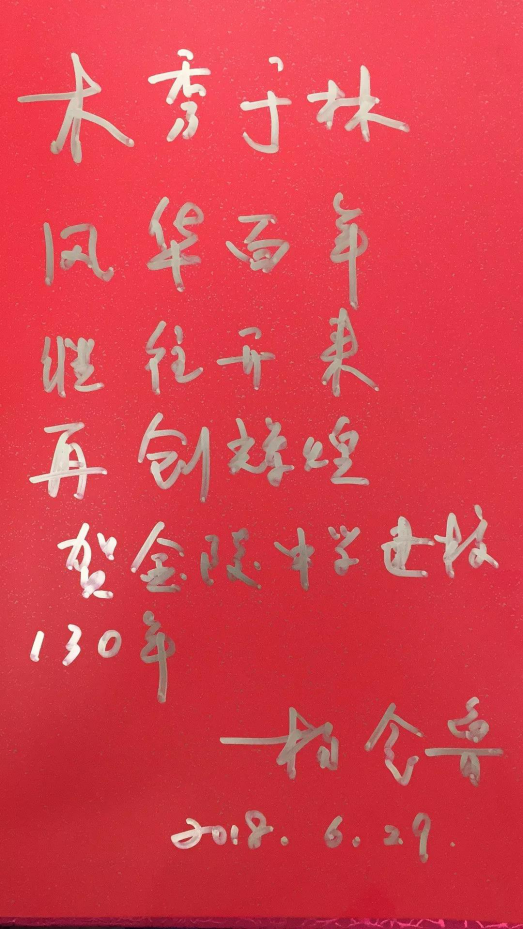 木秀于林
风华百年
继往开来
再创辉煌
贺金陵中学建校
130年
2018.6.29.